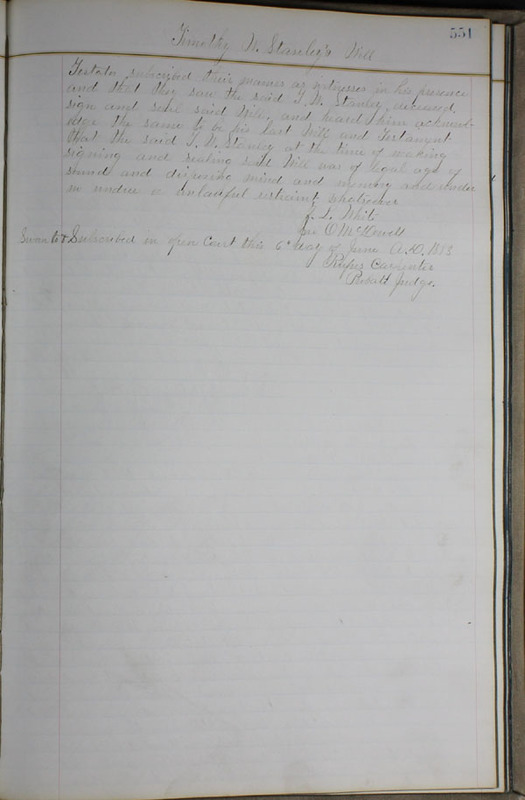 551
Timothy W. Stanley's Will
Testator subscribed their names as witnesses in his presence
and that they saw the said T. W. Stanley, deceased,
sign and seal said Will, and heard him acknowl-
edge the same to be his last Will and Testament
that the said T. W. Stanley at the time of making
signing and sealing said Will was of legal age of
sound and disposing mind and memory and under
no undue or unlawful restraint whatsoever
J. L. White
O McDowell
Sworn to & Subscribed in open Court this 6" day of June A.D. 1883
Rufus Carpenter
Probate Judge.